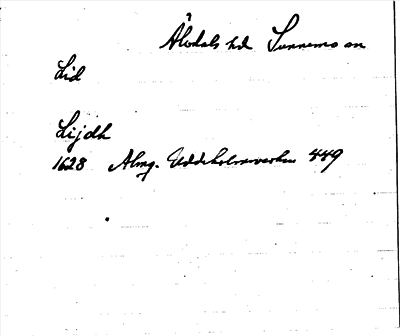 Älvdals hd Sunnemo sn
Lid
Lijdh
1628 Älvg. Uddeholmsverken 449